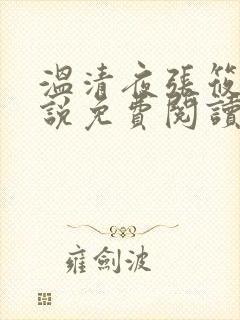 溫清夜張筱
說免費閱讀
雍劍波